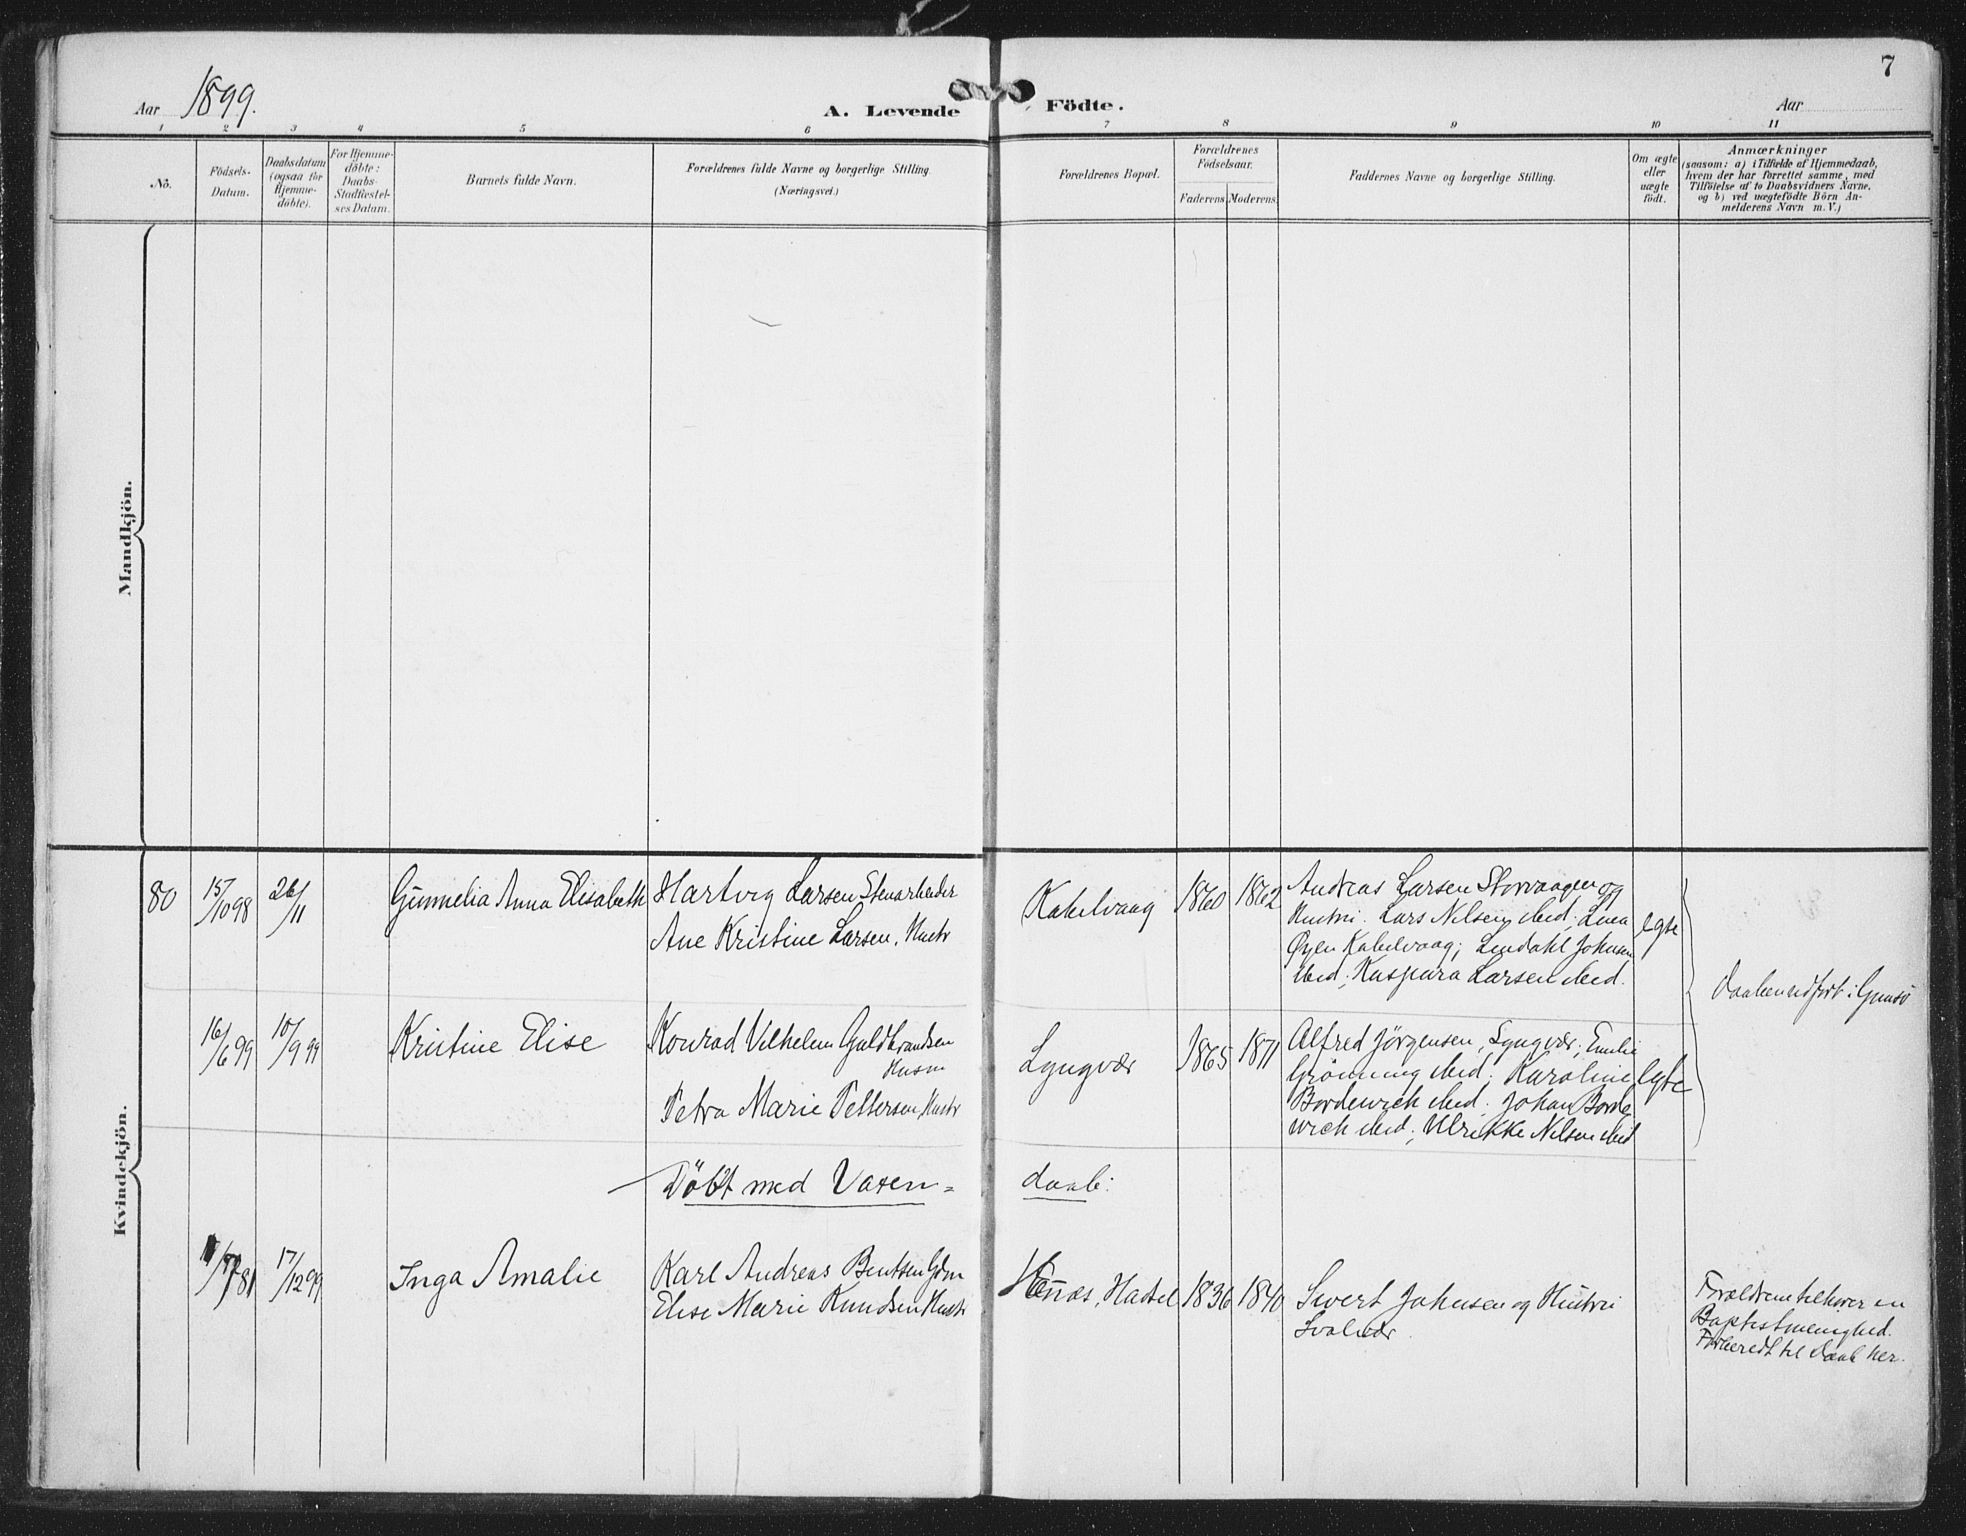 7
Aar 1899.
A. Levende Födte.
Aar
1 2 3 4 5 6 7 8 9 10 11
No.
Födsels-
Datum.
Daabsdatum
(ogsaa for
Hjemme-
döbte).
For Hjemme-
döbte:
Daabs-
Stadfæstel-
ses Datum.
Barnets fulde Navn.
Forældrenes fulde Navne og borgerlige Stilling.
(Næringsvei.)
Forældrenes Bopæl.
Forældrenes
Födselsaar.
Faderens Moderens
Faddernes Navne og borgerlige Stilling.
Om ægte
eller
uægte
födt.
Anmærkninger
(saasom: a) i Tilfælde af Hjemmedaab,
hvem der har forrettet samme, med
Tilföielse af to Daabsvidners Navne,
og b) ved uægtefödte Börn An-
melderens Navn m. V.)
Mandkjön.
Kvindekjön.
80
15/10 98
26/11
Gunnelia Anna Elisabeth
Hartvig Larsen Stenarbeider
Ane Kristine Larsen, Hustr
Kabelvaag
1860
1862
Andreas Larsen Storvaagen og
Hustru. Lars Nilsen, ibid; Lina
Øyen Kabelvaag; Lendahl Johnsen
ibid; Kaspara Larsen ibid.
egte
Daaben udført i Gimsø
16/6 99
10/9 99
Kristine Elise
Konrad Vilhelm Guldbrandsen
Husm
Petra Marie Pettersen, Hustr
Lyngvær
1865
1871
Alfred Jørgensen, Lyngvær; Emilie
Grönning ibid; Karoline
Bordewich ibid. Johan Borde
wich ibid; Ulrikke Nilsen ibid
egte
Döbt med Voxen=
daab:
81
17/12 99
Inga Amalie
Karl Andreas Bentsen Gdm
Elise Marie Knudsen Hustr
Hadsel
1836
1840
Sivert Johnsen og Hustru
Svolvær.
Forældrene tilhører en
Baptistmenighed.
Forberedt til Daab her.